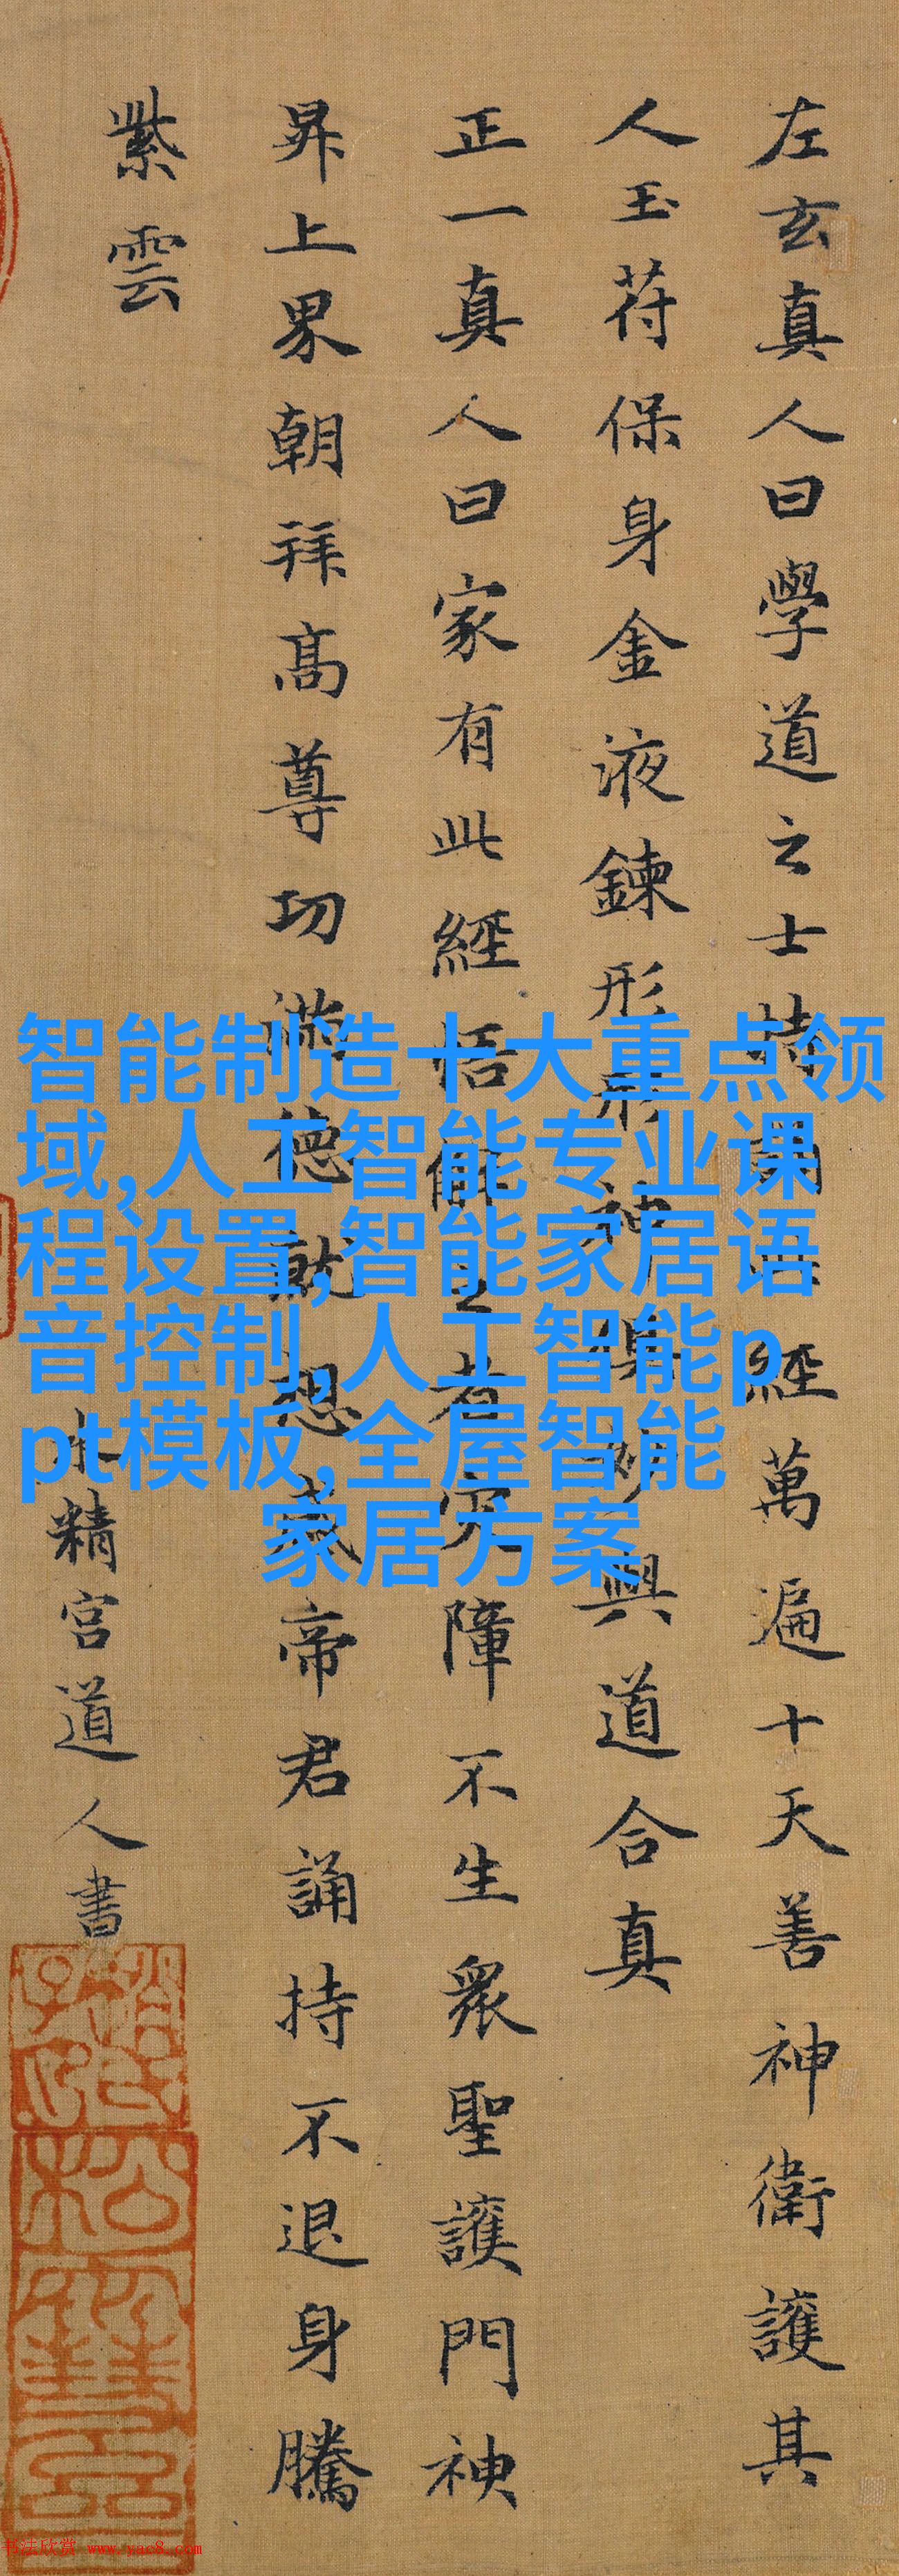 左玄真人曰學道之士持誦此經萬遍十天善神衛護其
人玉苻保身金液鍊形形神俱妙與道合真
正一真人曰家有此經悟解之者灾障不生衆聖護門神
昇上界朝拜高尊功滿德就想感帝君誦持不退身騰
紫雲
水精宮道人書
智能制造十大重点领
域,人工智能专业课
程设置,智能家居语
音控制,人工智能p
pt模板,全屋智能
家居方案
书法欣赏 www.yac8.com